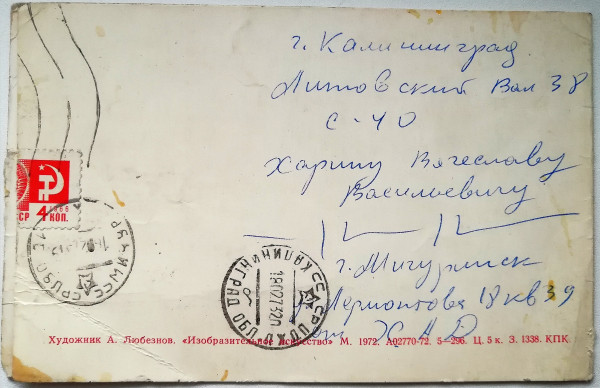 г. Калининград
Литовский Вал 38
с-40
Харину Вячеславу
Васильевичу
г. Мичуринск
Лермонтова 18 кв 39
от ХАД
СССР
4 КОП.
КАЛИНИНГРАД
Художник А. Любезнов. «Изобразительное искусство» М. 1972. А02770-72. 5—296. Ц. 5 к. З. 1338. КПК.